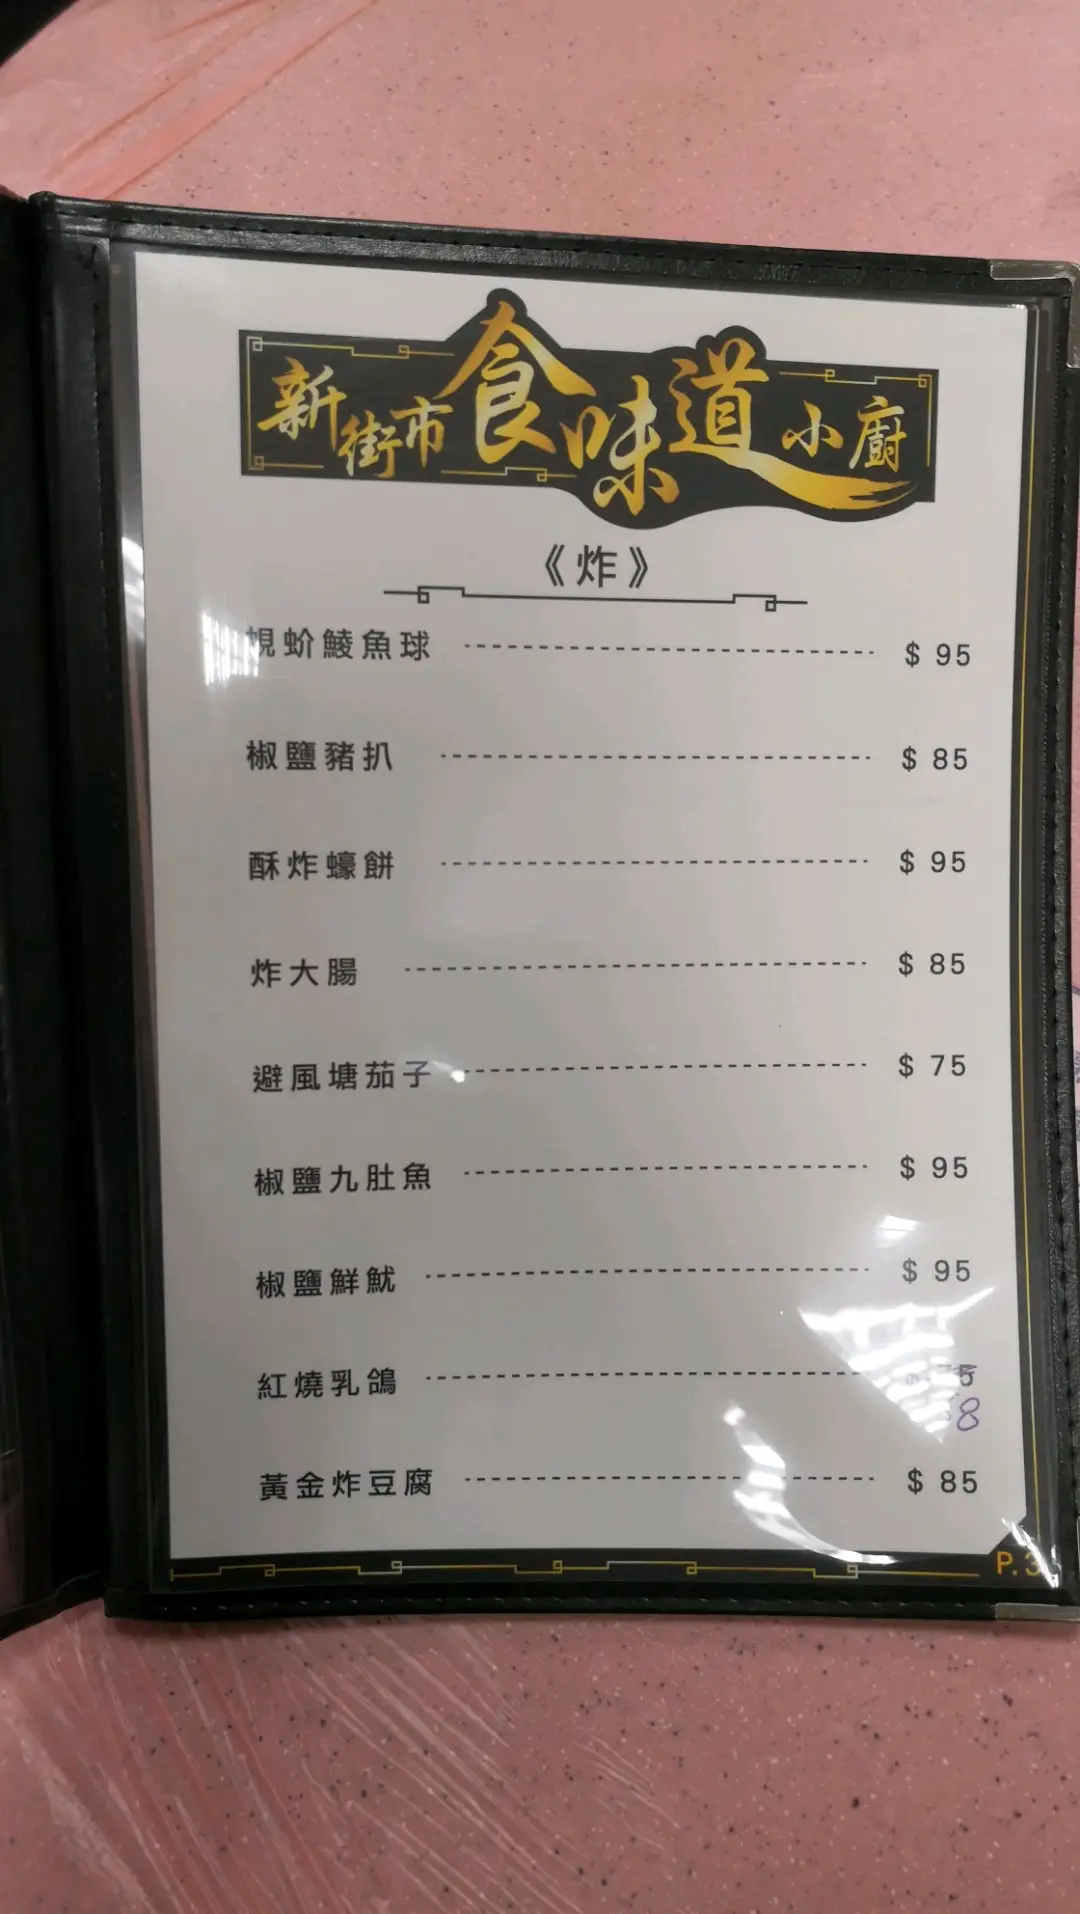 新街市食味道小廚
《炸》
蜆蚧鯪魚球 $ 95
椒鹽豬扒 $ 85
酥炸蠔餅 $ 95
炸大腸 $ 85
避風塘茄子 $ 75
椒鹽九肚魚 $ 95
椒鹽鮮魷 $ 95
紅燒乳鴿
8
黃金炸豆腐 $ 85
P.3